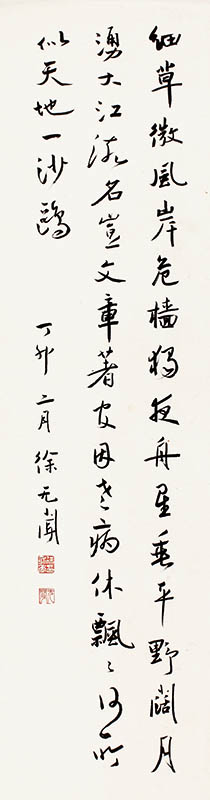 細草微風岸危檣獨夜舟星垂平野闊月
湧大江流名豈文章著官因老病休飄〻何所
似天地一沙鷗
丁卯二月徐无聞